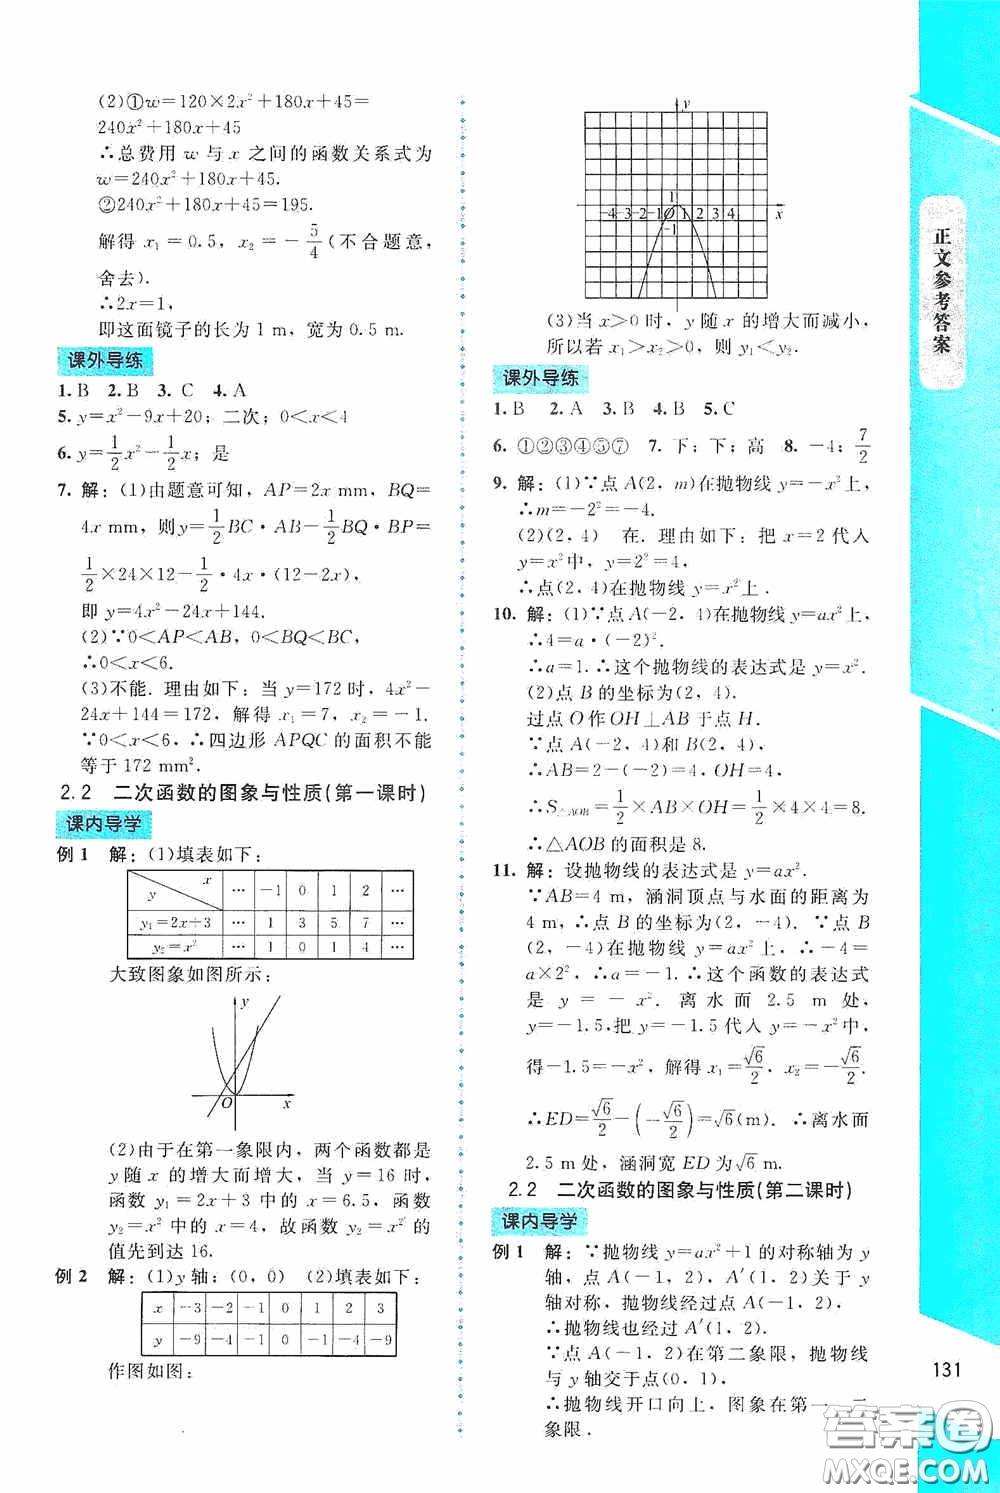 (2)①w=120×2x²+180x+45=
240x²+180x+45
∴总费用 w 与 x 之间的函数关系式为
w=240x²+180x+45.
②240x²+180x+45=195.
解得 x₁=0.5, x₂=-5/4(不合题意,
舍去).
∴2x=1,
即这面镜子的长为 1 m, 宽为 0.5 m.
课外导练
1. B 2. B 3. C 4. A
5. y=x²-9x+20; 二次; 0<x<4
6. y=1/2x²-1/2x; 是
7. 解: (1)由题意可知, AP=2x mm, BQ=
4x mm, 则 y=1/2BC·AB-1/2BQ·BP=
1/2×24×12-1/2·4x·(12-2x),
即 y=4x²-24x+144.
(2)∵0<AP<AB, 0<BQ<BC,
∴0<x<6.
(3)不能. 理由如下: 当 y=172 时, 4x²-
24x+144=172, 解得 x₁=7, x₂=-1.
∵0<x<6, ∴四边形 APQC 的面积不能
等于 172 mm².
2.2 二次函数的图象与性质(第一课时)
课内导学
例 1 解: (1)填表如下:
x y … -1 0 1 2 …
y₁=2x+3 … 1 3 5 7 …
y₂=x² … 1 0 1 4 …
大致图象如图所示:
y
O x
(2)由于在第一象限内, 两个函数都是
y 随 x 的增大而增大, 当 y=16 时,
函数 y₁=2x+3 中的 x=6.5, 函数
y₂=x² 中的 x=4, 故函数 y₂=x² 的
值先到达 16.
例 2 解: (1)y 轴; (0, 0) (2)填表如下:
x -3 -2 -1 0 1 2 3
y -9 -4 -1 0 -1 -4 -9
作图如图:
y
1
-4 -3 -2 -1 O 1 2 3 4 x
-1
(3)当 x>0 时, y 随 x 的增大而减小,
所以若 x₁>x₂>0, 则 y₁<y₂.
课外导练
1. B 2. A 3. B 4. B 5. C
6. ①②③④⑤⑦ 7. 下; 下; 高 8. -4; 7/2
9. 解: (1)∵点 A(2, m)在抛物线 y=-x²上,
∴m=-2²=-4.
(2)(2, 4) 在. 理由如下: 把 x=2 代入
y=x²中, y=2²=4,
∴点(2, 4)在抛物线 y=x²上.
10. 解: (1)∵点 A(-2, 4)在抛物线 y=ax²上,
∴4=a·(-2)².
∴a=1. ∴这个抛物线的表达式是 y=x².
(2)点 B 的坐标为(2, 4).
过点 O 作 OH⊥AB 于点 H.
∵点 A(-2, 4)和 B(2, 4),
∴AB=2-(-2)=4, OH=4.
∴S△AOB=1/2×AB×OH=1/2×4×4=8.
∴△AOB 的面积是 8.
11. 解: 设抛物线的表达式是 y=ax².
∵AB=4 m, 涵洞顶点与水面的距离为
4 m, ∴点 B 的坐标为(2, -4). ∵点 B
(2, -4)在抛物线 y=ax²上, ∴-4=
a×2², ∴a=-1. ∴这个函数的表达式
是 y=-x². 离水面 2.5 m 处,
y=-1.5, 把 y=-1.5 代入 y=-x²中,
得-1.5=-x², 解得 x₁=√6/2, x₂=-√6/2.
∴ED=√6/2-(-√6/2)=√6(m). ∴离水面
2.5 m 处, 涵洞宽 ED 为√6 m.
2.2 二次函数的图象与性质(第二课时)
课内导学
例 1 解: ∵抛物线 y=ax²+1 的对称轴为 y
轴, 点 A(-1, 2), A′(1, 2)关于 y
轴对称, 抛物线经过点 A(-1, 2).
∴抛物线也经过 A′(1, 2).
∵点 A(-1, 2)在第二象限, 抛物线
与 y 轴交于点(0, 1).
∴抛物线开口向上, 图象在第一、二
象限.
正文参考答案
131
答案卷
MXQE.COM